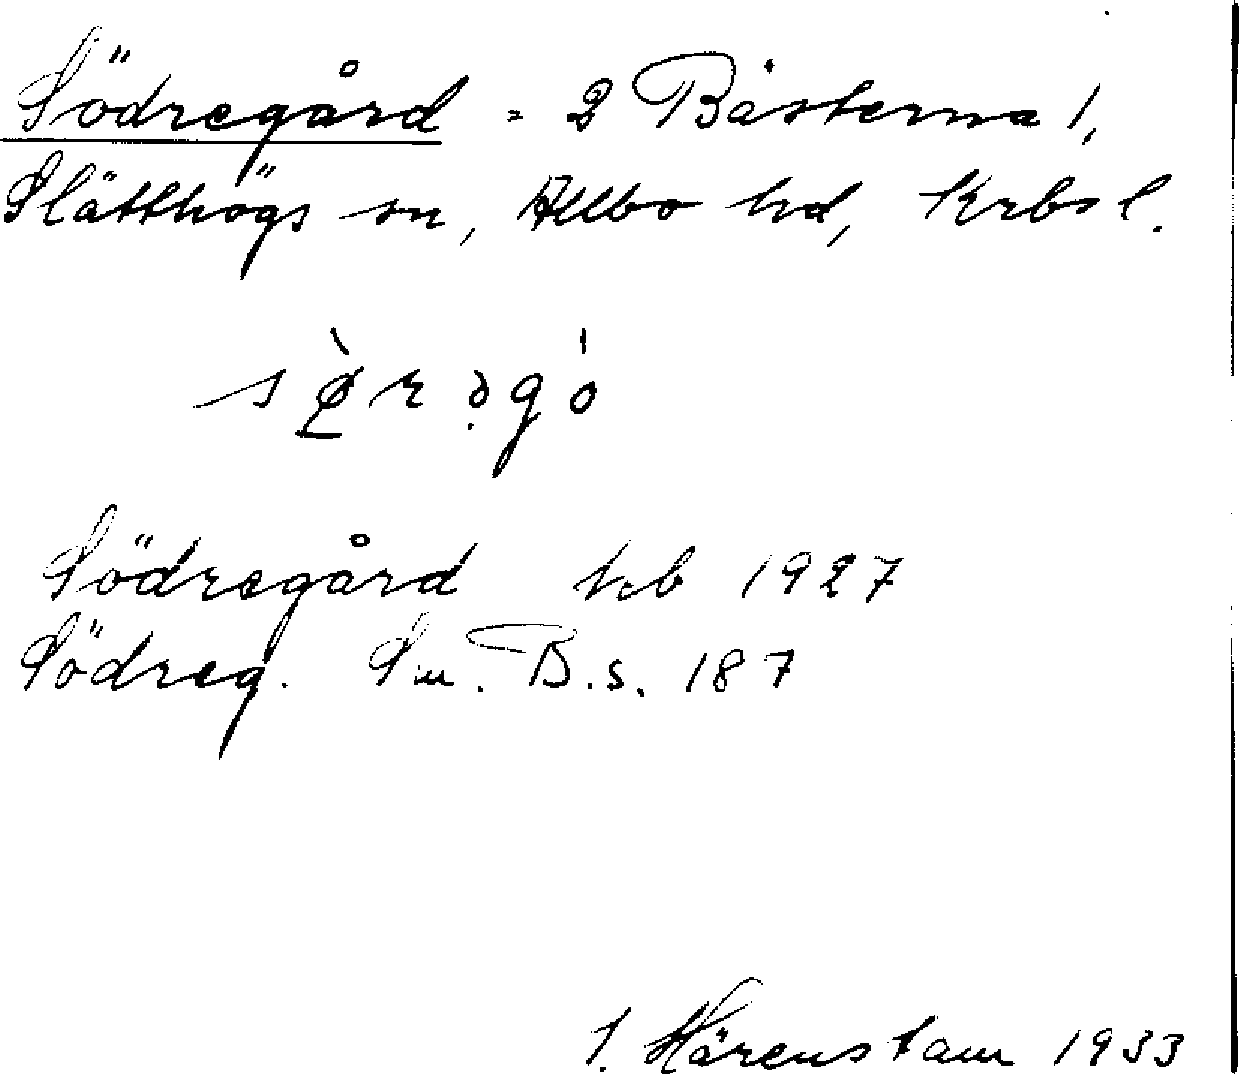 Södregård = 2 Båsterna 1,
Slätthögs sn, Allbo hd, Krbsl.
sø̀rəgó
Södregård hb 1927
Södreg. Sm. B.s. 187
I. Härenstam 1933